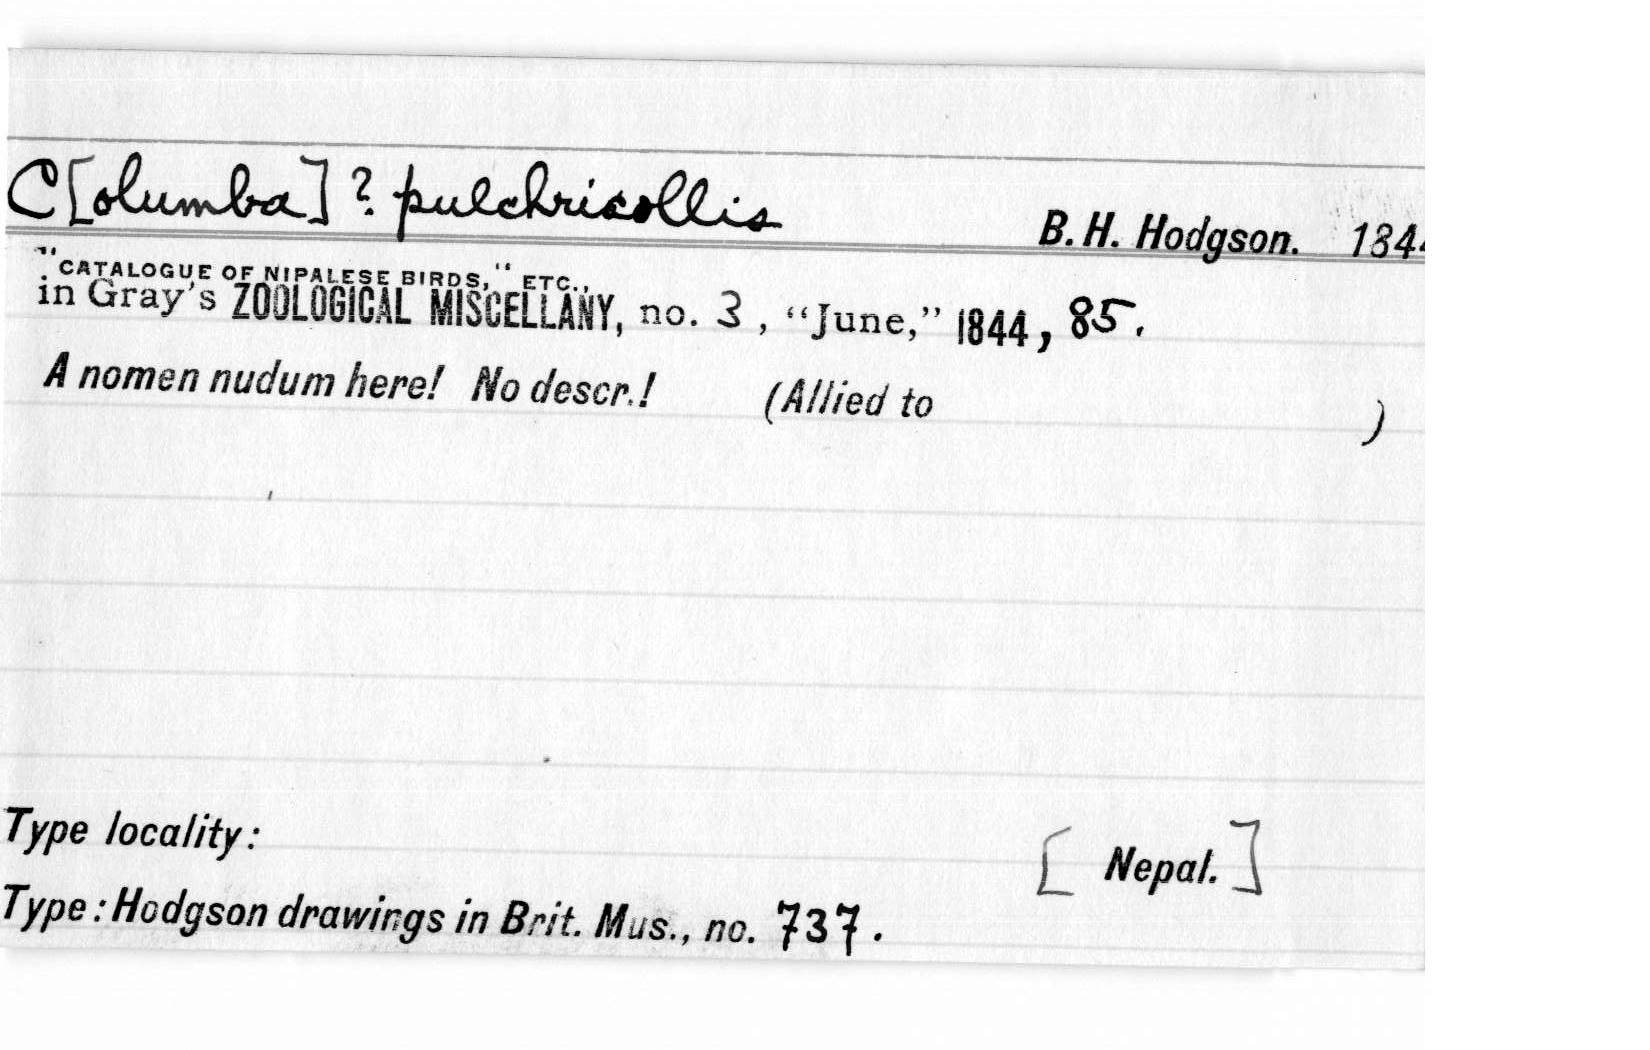 C[olumba]? pulchricollis B. H. Hodgson. 184
"CATALOGUE OF NIPALESE BIRDS," ETC.,
in Gray's ZOOLOGICAL MISCELLANY, no. 3, "June," 1844, 85.
A nomen nudum here! No descr.! (Allied to )
Type locality: [Nepal.]
Type: Hodgson drawings in Brit. Mus., no. 737.